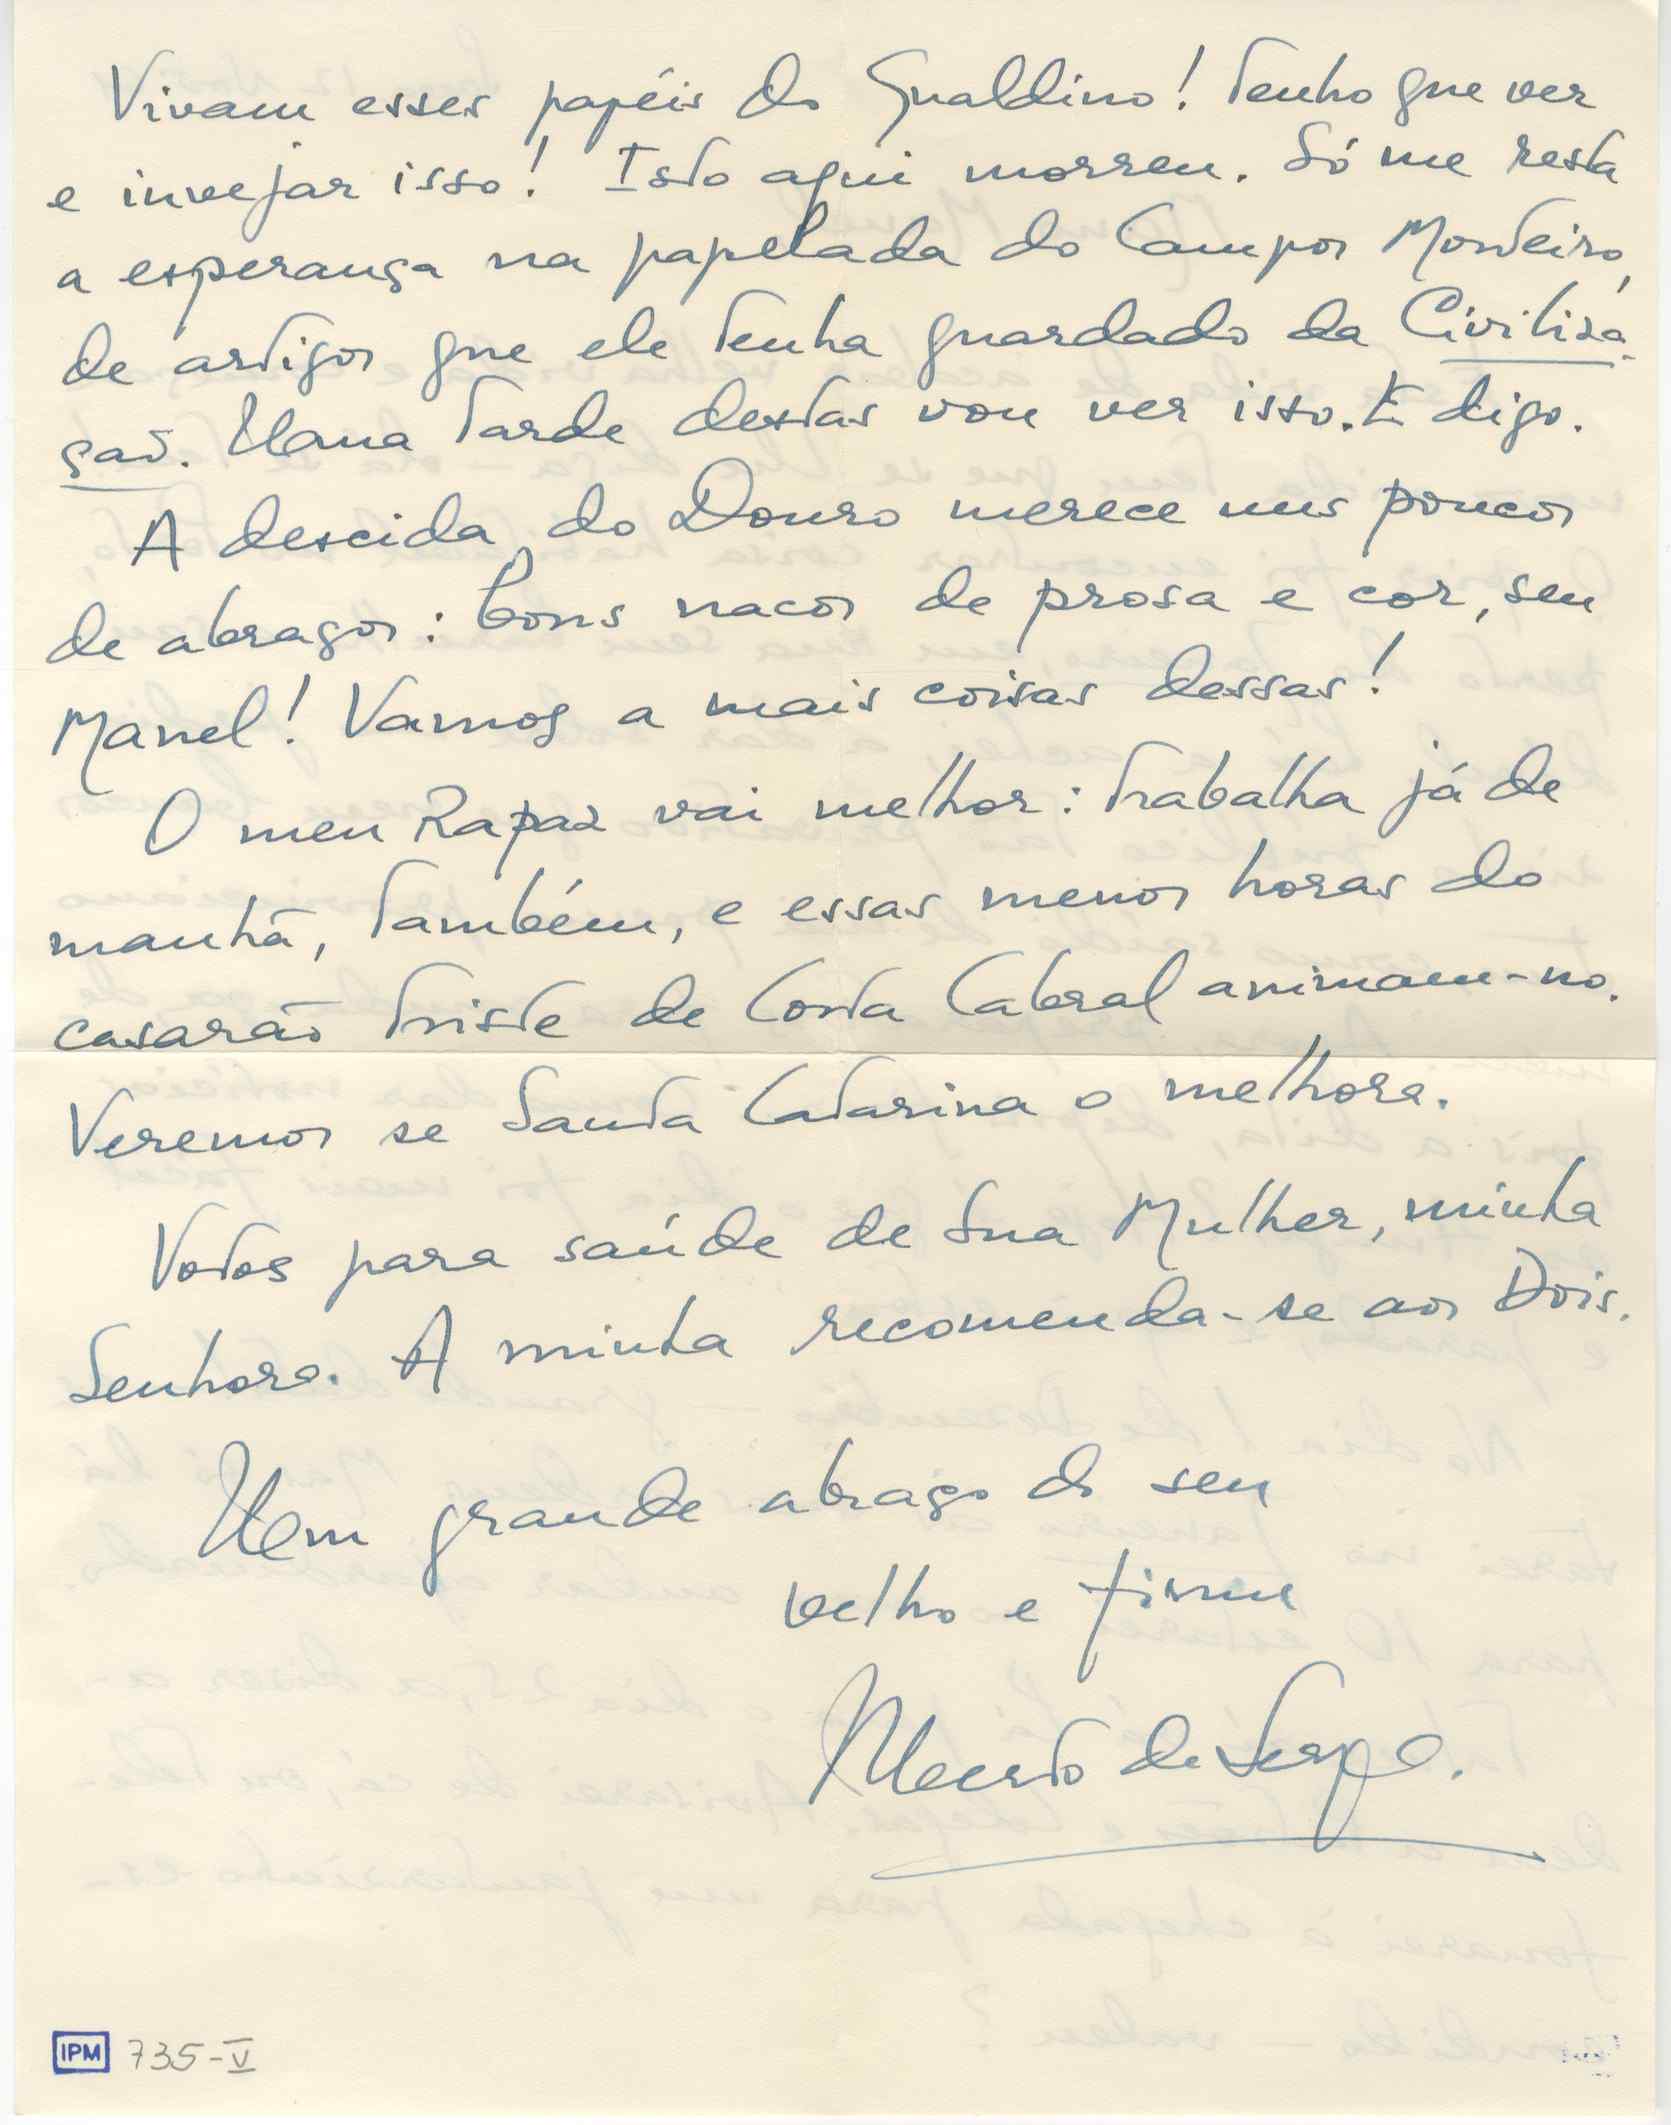 Vivam esses papéis do Gualdino! Tenho que ver
e invejar isso! Isto aqui morreu. Só me resta
a esperança na papelada do Campos Monteiro,
de artigos que ele tenha guardado da Civiliza-
ção. Uma tarde destas vou ver isso. E digo.
A descida do Douro merece uns poucos
de abraços: bons nacos de prosa e cor, seu
Manel! Vamos a mais coisas dessas!
O meu Rapaz vai melhor: trabalha já de
manhã, também, e essas menos horas do
casarão triste de Costa Cabral animam-no.
Veremos se Santa Catarina o melhora.
Votos para saúde de Sua Mulher, minha
Senhora. A minha recomenda-se aos Dois.
Um grande abraço do seu
velho e firme
Alberto de Serpa.
IPM 735-V